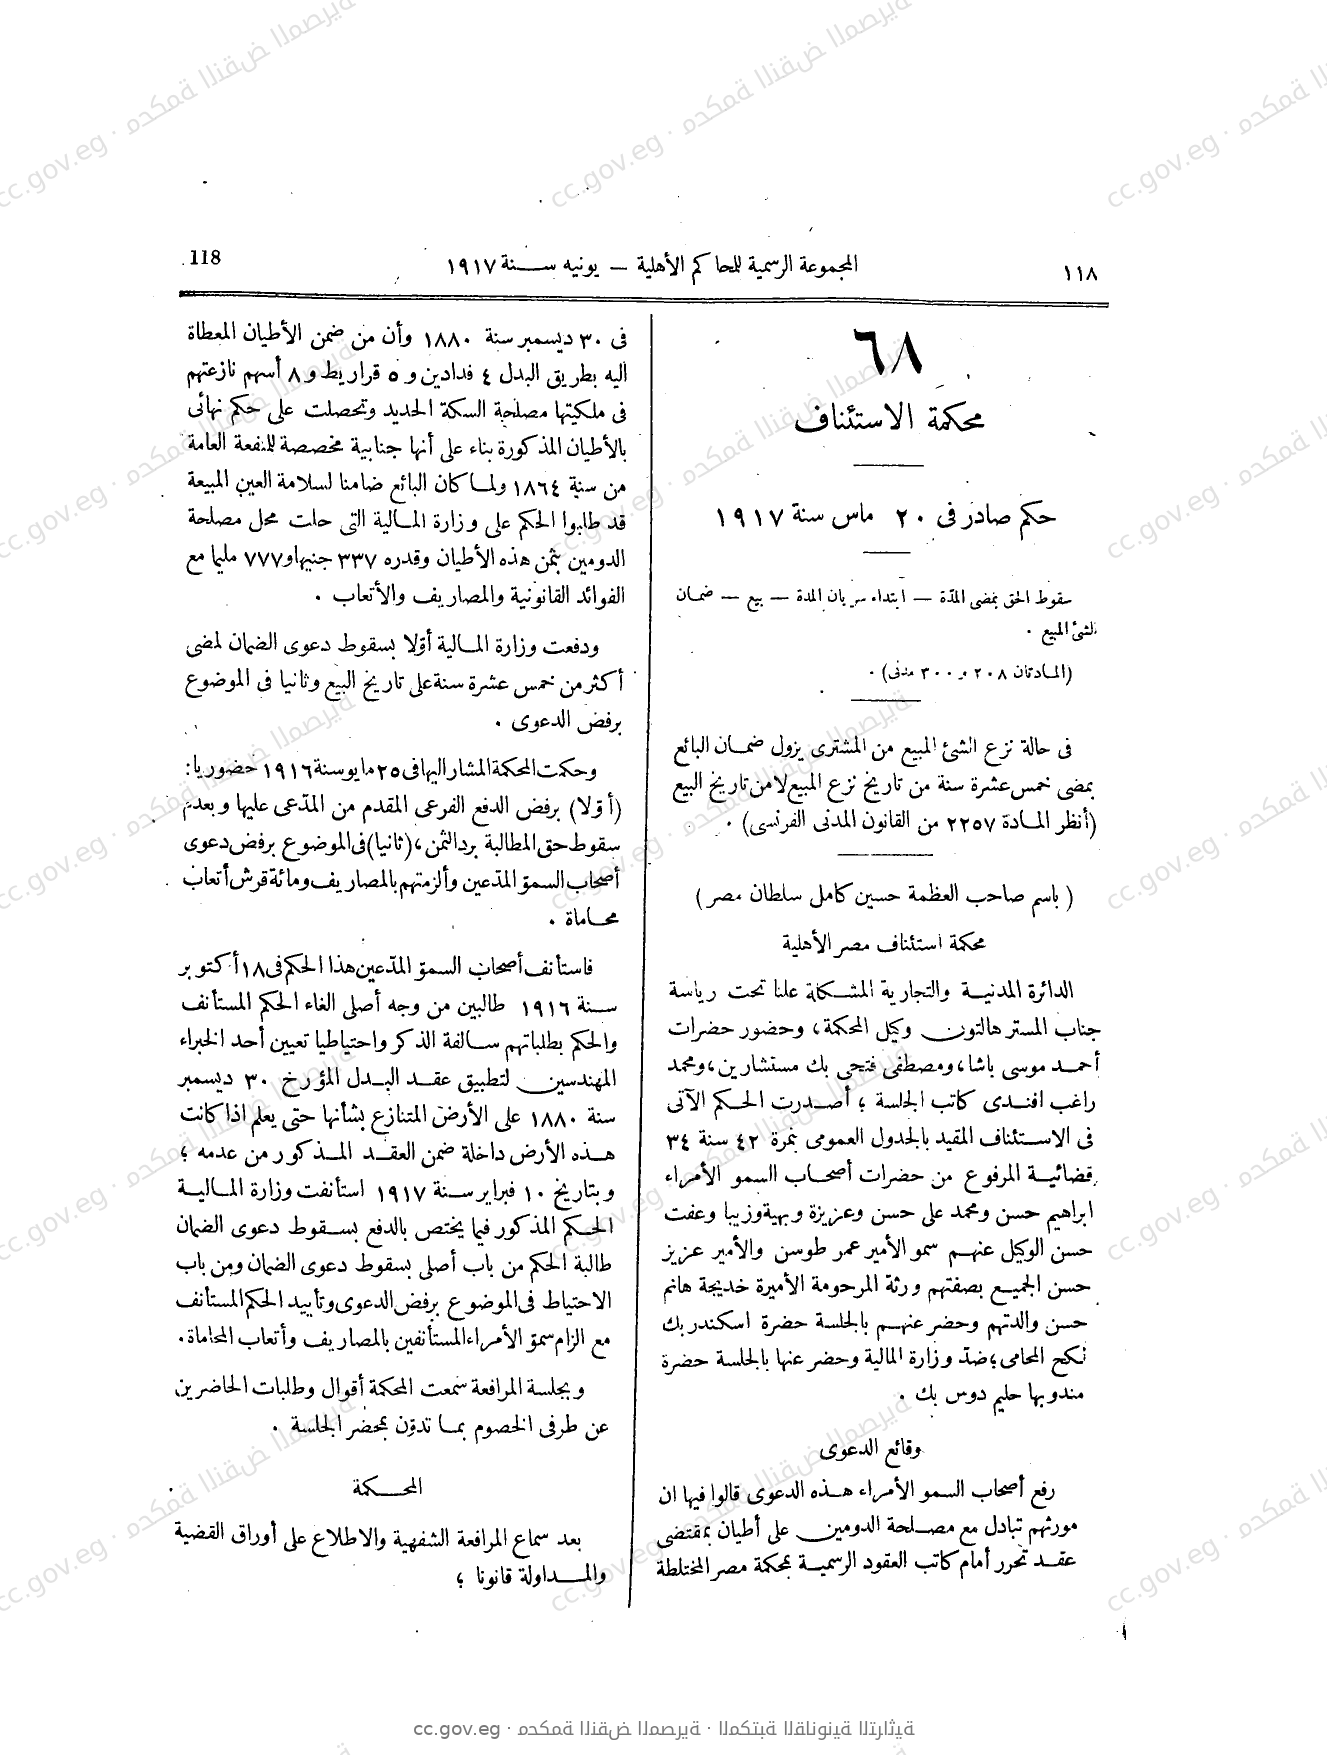 ١١٨
المجموعة الرسمية للمحاكم الأهلية — يونيه سنة ١٩١٧
118
٦٨
محكمة الاستئناف
حكم صادر فى ٢٠ مارس سنة ١٩١٧
سقوط الحق بمضى المدّة — ابتداء سريان المدة — بيع — ضمان
الشئ المبيع .
(المادتان ٢٠٨ و ٣٠٠ مدنى) .
فى حالة نزع الشئ المبيع من المشترى يزول ضمان البائع
بمضى خمس عشرة سنة من تاريخ نزع المبيع لا من تاريخ البيع
(أنظر المادة ٢٢٥٧ من القانون المدنى الفرنسى) .
( باسم صاحب العظمة حسين كامل سلطان مصر )
محكمة استئناف مصر الأهلية
الدائرة المدنية والتجارية المشكلة علنا تحت رياسة
جناب المستر هالتون وكيل المحكمة، وحضور حضرات
أحمد موسى باشا، ومصطفى فتحى بك مستشارين، ومحمد
راغب افندى كاتب الجلسة ؛ أصدرت الحكم الآتى
فى الاستئناف المقيد بالجدول العمومى بنمرة ٤٢ سنة ٣٤
قضائية المرفوع من حضرات أصحاب السمو الأمراء
ابراهيم حسن ومحمد على حسن وعزيزة وبهية وزيبا وعفت
حسن الوكيل عنهم سمو الأمير عمر طوسن والأمير عزيز
حسن الجميع بصفتهم ورثة المرحومة الأميرة خديجة هانم
حسن والدتهم وحضر عنهم بالجلسة حضرة اسكندر بك
نكح المحامى ؛ ضدّ وزارة المالية وحضر عنها بالجلسة حضرة
مندوبها حليم دوس بك .
وقائع الدعوى
رفع أصحاب السمو الأمراء هذه الدعوى قالوا فيها ان
مورثهم تبادل مع مصلحة الدومين على أطيان بمقتضى
عقد تحرر أمام كاتب العقود الرسمية بمحكمة مصر المختلطة
فى ٣٠ ديسمبر سنة ١٨٨٠ وأن من ضمن الأطيان المعطاة
اليه بطريق البدل ٤ فدادين و ٥ قراريط و ٨ أسهم نازعتهم
فى ملكيتها مصلحة السكة الحديد وتحصلت على حكم نهائى
بالأطيان المذكورة بناء على أنها جنابية مخصصة للمنفعة العامة
من سنة ١٨٦٤ ولما كان البائع ضامنا لسلامة العين المبيعة
قد طلبوا الحكم على وزارة المالية التى حلت محل مصلحة
الدومين بثمن هذه الأطيان وقدره ٣٣٧ جنيها و٧٧٧ مليما مع
الفوائد القانونية والمصاريف والأتعاب .
ودفعت وزارة المالية أوّلا بسقوط دعوى الضمان لمضى
أكثر من خمس عشرة سنة على تاريخ البيع وثانيا فى الموضوع
برفض الدعوى .
وحكمت المحكمة المشار اليها فى ٢٥ مايو سنة ١٩١٦ حضوريا :
(أوّلا) برفض الدفع الفرعى المقدم من المدّعى عليها وبعدم
سقوط حق المطالبة برد الثمن ، (ثانيا) فى الموضوع برفض دعوى
أصحاب السموّ المدّعين وألزمتهم بالمصاريف ومائة قرش أتعاب
محاماة .
فاستأنف أصحاب السموّ المدّعين هذا الحكم فى ١٨ أكتوبر
سنة ١٩١٦ طالبين من وجه أصلى الغاء الحكم المستأنف
والحكم بطلباتهم سالفة الذكر واحتياطيا تعيين أحد الخبراء
المهندسين لتطبيق عقد البدل المؤرخ ٣٠ ديسمبر
سنة ١٨٨٠ على الأرض المتنازع بشأنها حتى يعلم اذا كانت
هذه الأرض داخلة ضمن العقد المذكور من عدمه ؛
وبتاريخ ١٠ فبراير سنة ١٩١٧ استأنفت وزارة المالية
الحكم المذكور فيما يختص بالدفع بسقوط دعوى الضمان
طالبة الحكم من باب أصلى بسقوط دعوى الضمان ومن باب
الاحتياط فى الموضوع برفض الدعوى وتأييد الحكم المستأنف
مع الزام سموّ الأمراء المستأنفين بالمصاريف وأتعاب المحاماة .
وبجلسة المرافعة سمعت المحكمة أقوال وطلبات الحاضرين
عن طرفى الخصوم بما تدوّن بمحضر الجلسة .
المحكمة
بعد سماع المرافعة الشفهية والاطلاع على أوراق القضية
والمداولة قانونا ؛
cc.gov.eg · محكمة النقض المصرية · المكتبة القانونية التراثية